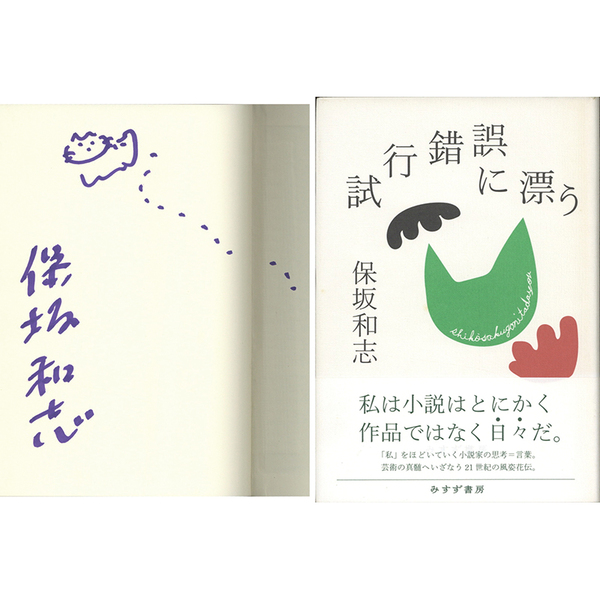 保坂和志
試行錯誤に漂う
保坂和志
shikōsakugonitadayou
私は小説はとにかく
作品ではなく日々だ。
「私」をほどいていく小説家の思考=言葉。
芸術の真髄へいざなう21世紀の風姿花伝。
みすず書房